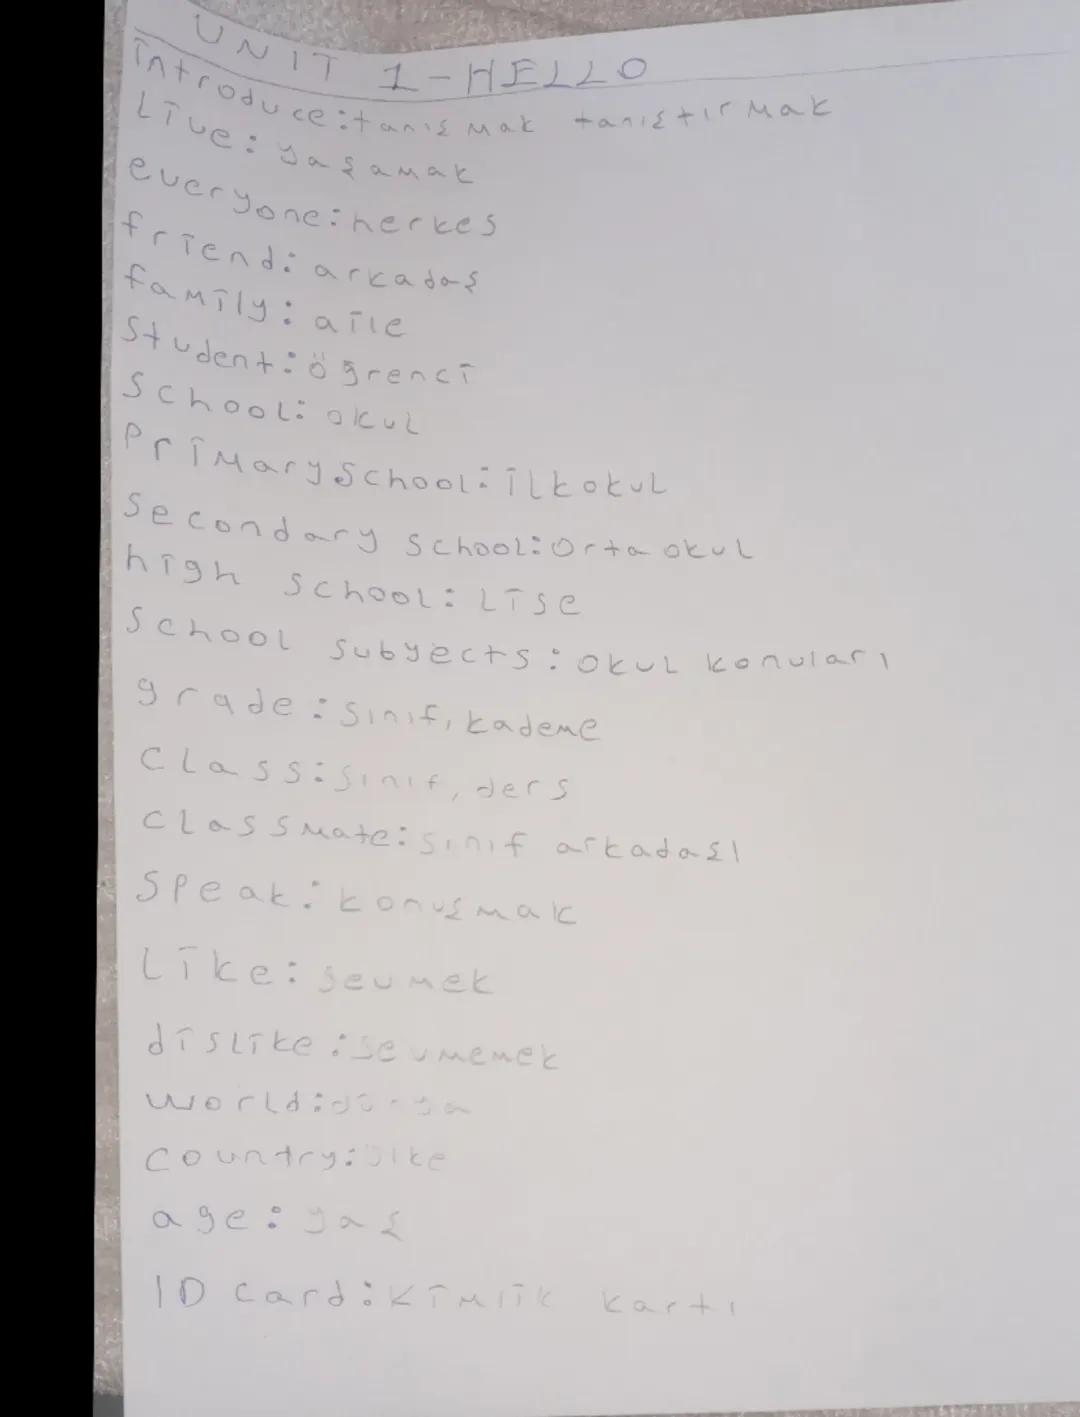 UNIT 1-HELLO
introduce: tanışmak tanıştırmak
Live: yaşamak
everyone: herkes
friend: arkadaş
family: aile
Student: öğrenci
School: okul
Primary School: ilkokul
Secondary school: Orta okul
high school: Lise
School subyects: okul konuları
grade: sınıf, kademe
Class: sınıf, ders
classmate: sınıf arkadaşı
Speak: konuşmak
Like: sevmek
dislike: sevmemek
world: dünya
country: ülke
age: yaş
ID card: kimlik kartı